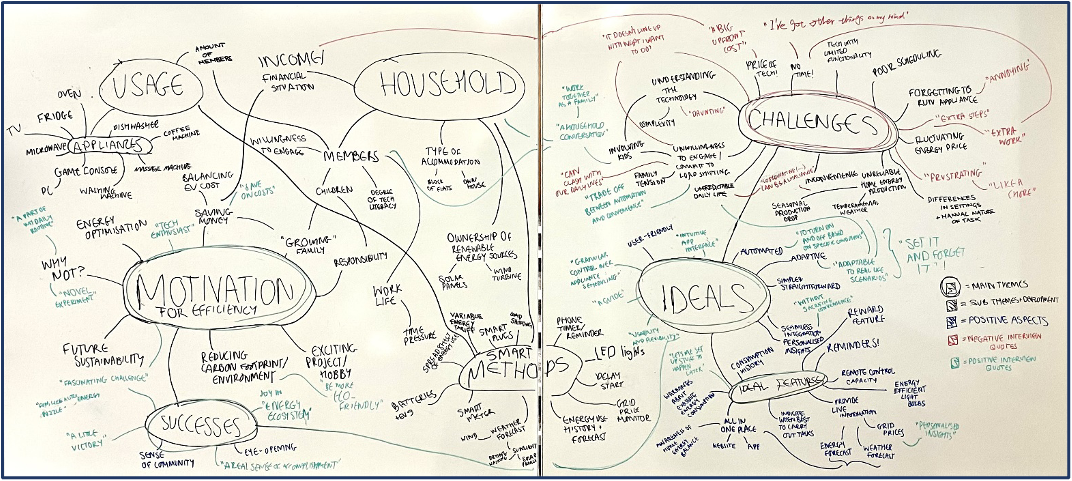 USAGE
AMOUNT
OF
MEMBERS
OVEN
FRIDGE
TV
MICROWAVE
APPLIANCES
DISHWASHER
COFFEE
MACHINE
MASSAGE MACHINE
GAME CONSOLE
PC
WASHING
MACHINE
INCOME/
FINANCIAL
SITUATION
HOUSEHOLD
WILLINGNESS
TO ENGAGE
MEMBERS
TYPE OF
ACCOMMODATION
BLOCK
OF FLATS
OWN
HOUSE
CHILDREN
DEGREE
OF TECH
LITERACY
BALANCING
EV COST
"SAVE
ON COSTS"
SAVING
MONEY
"GROWING"
FAMILY
RESPONSIBILITY
WORK
LIFE
TIME
PRESSURE
OWNERSHIP OF
RENEWABLE
ENERGY SOURCES
SOLAR
PANELS
WIND
TURBINE
"A PART OF
MY DAILY
ROUTINE"
ENERGY
OPTIMISATION
"TECH
ENTHUSIAST"
WHY
NOT?
"NOVEL
EXPERIMENT"
MOTIVATION
FOR EFFICIENCY
FUTURE
SUSTAINABILITY
"FASCINATING CHALLENGE"
REDUCING
CARBON FOOTPRINT/
ENVIRONMENT
EXCITING
PROJECT/
HOBBY
"BE MORE
ECO-
FRIENDLY"
JOY IN
"ENERGY
ECOSYSTEM"
SUCCESSES
"A LITTLE
VICTORY"
SENSE
OF COMMUNITY
EYE-OPENING
"A REAL SENSE OF ACCOMPLISHMENT"
SMART
METHODS
VARIABLE
ENERGY
TARIFF
SMART
PLUGS
BATTERIES
SMART
METER
WIND
WEATHER
FORECAST
PHONE
TIMER/
REMINDER
LED lights
DELAY
START
GRID
PRICE
MONITOR
ENERGY USE
HISTORY +
FORECAST
CHALLENGES
"IT DOESN'T LINE UP
WITH WHAT I WANT
TO DO"
"BIG
UPFRONT
COST"
"I've got other things on my mind"
PRICE OF
TECH!
NO
TIME!
TECH WITH
LIMITED
FUNCTIONALITY
POOR SCHEDULING
FORGETTING TO
RUN APPLIANCE
"ANNOYING"
"EXTRA STEPS"
"EXTRA
WORK"
FLUCTUATING
ENERGY PRICE
"FRUSTRATING"
"LIKE A
CHORE"
UNDERSTANDING
THE
TECHNOLOGY
COMPLEXITY
"DAUNTING"
"WORK
TOGETHER
AS A FAMILY"
"A HOUSEHOLD
CONVERSATION"
INVOLVING
KIDS
UNWILLINGNESS
TO ENGAGE/
COMMIT TO
LOAD SHIFTING
FAMILY
TENSION
"CAN
CLASH WITH
OUR DAILY LIVES"
"TRADE OFF
BETWEEN AUTOMATION
AND CONVENIENCE"
UNPREDICTABLE
DAILY LIFE
INCONVENIENCE
UNRELIABLE
HOME ENERGY
PRODUCTION
SEASONAL
PRODUCTION
DROP
TEMPERAMENTAL
WEATHER
DIFFERENCES
IN SETTINGS
+ MANUAL NATURE
OF TASK
IDEALS
USER-FRIENDLY
"INTUITIVE
APP
INTERFACE"
"GRANULAR
CONTROL OVER
APPLIANCE
SCHEDULING"
"A GUIDE"
AUTOMATED
"TO TURN ON
AND OFF BASED
ON SPECIFIC CONDITIONS"
ADAPTIVE
"ADAPTABLE
TO REAL LIFE
SCENARIOS"
"SET IT
AND FORGET
IT"!
SIMPLE/
STRAIGHTFORWARD
"WITHOUT
SACRIFICING CONVENIENCE"
SEAMLESS
INTEGRATION
PERSONALISED
INSIGHTS
REWARD
FEATURE
REMINDERS!
CONSUMPTION
HISTORY
IDEAL FEATURES
REMOTE CONTROL
CAPACITY
ENERGY
EFFICIENT
LIGHT
BULBS
PROVIDE
LIVE
INFORMATION
GRID
PRICES
"PERSONALISED
INSIGHTS"
ENERGY
FORECAST
WEATHER
FORECAST
INDICATE
WHEN BEST
TO CARRY
OUT TASKS
ALL IN
ONE PLACE
WEBSITE
APP
= MAIN THEMES
= SUB THEMES + DEVELOPMENT
= POSITIVE ASPECTS
= NEGATIVE INTERVIEW
QUOTES
= POSITIVE INTERVIEW
QUOTES